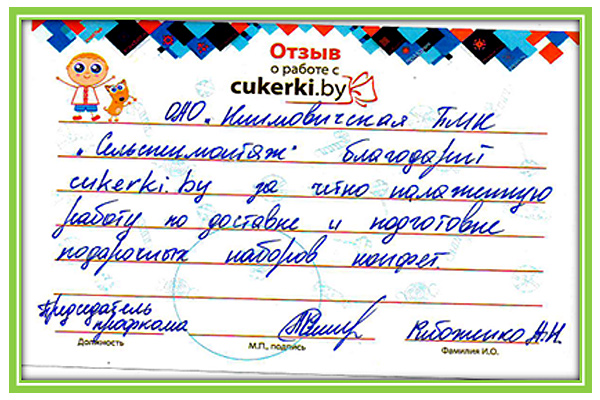 Отзыв
о работе с
cukerki.by
ОАО "Климовичская ПМК
"Сельхозмонтаж" благодарит
cukerki.by за четко налаженную
работу по доставке и подготовке
подарочных наборов конфет.
Председатель
профкома
Должность
М.П., подпись
Фамилия И.О.